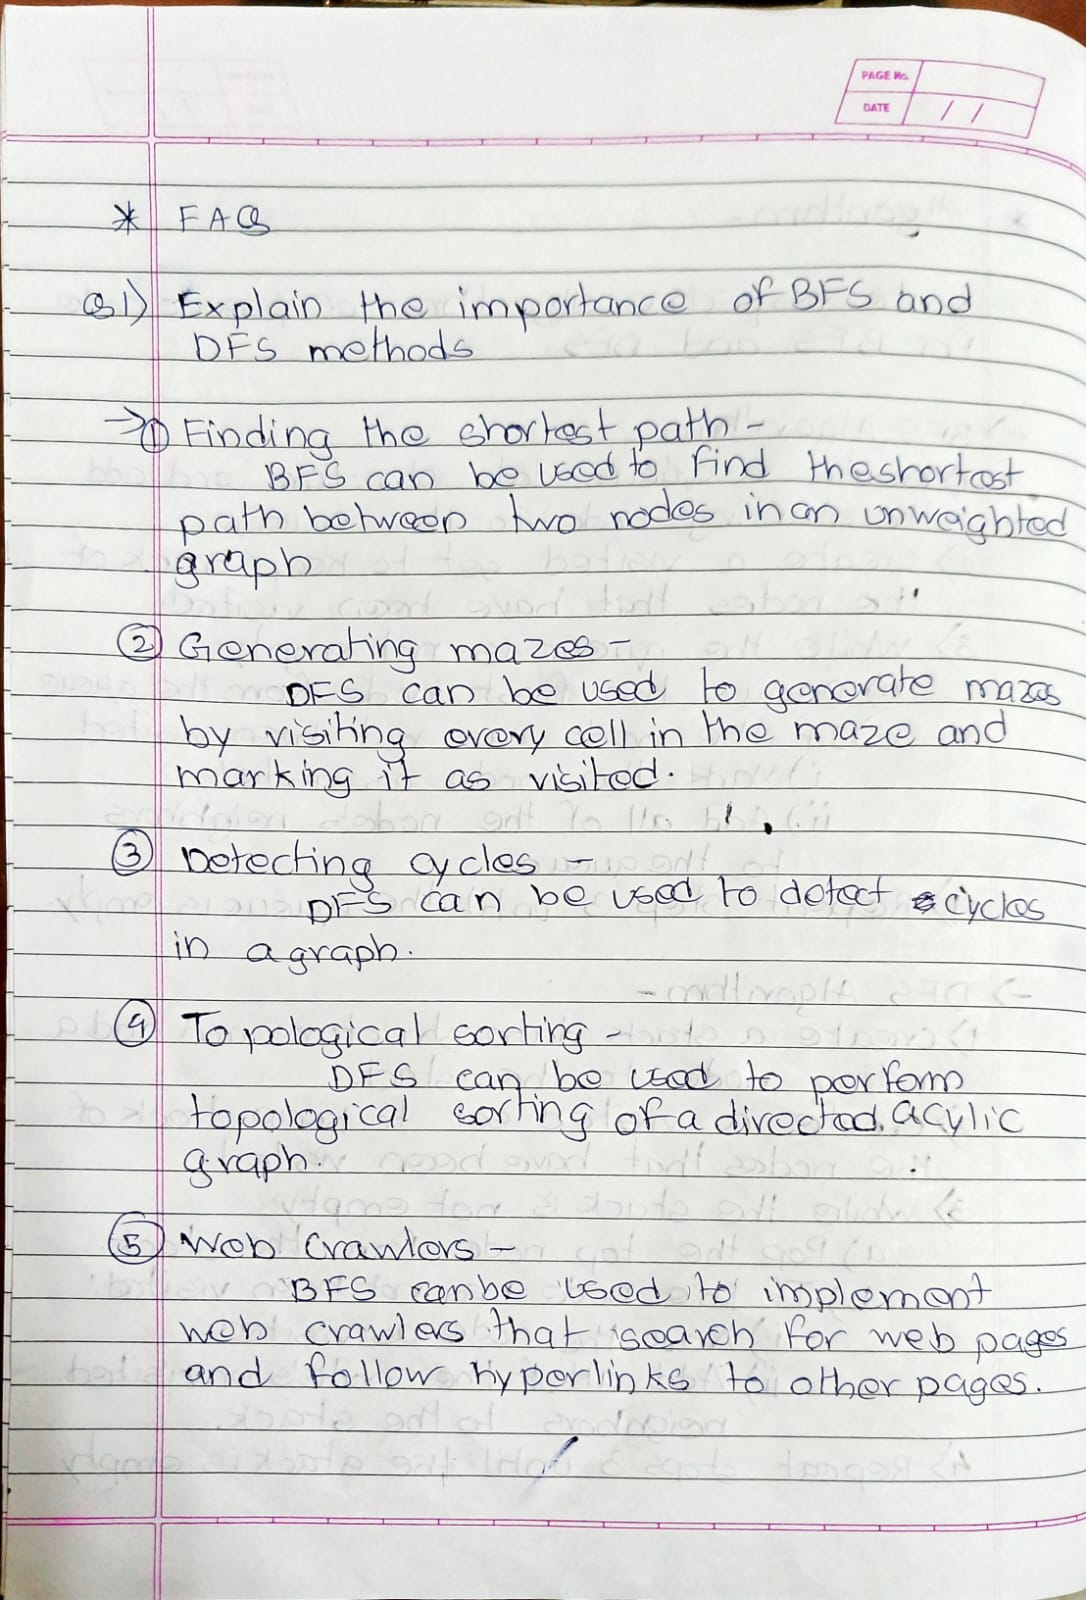 PAGE No.
DATE / /
* FAQ
Q1) Explain the importance of BFS and
DFS methods
→ ① Finding the shortest path -
BFS can be used to find the shortest
path between two nodes in an unweighted
graph
② Generating mazes -
DFS can be used to generate mazes
by visiting every cell in the maze and
marking it as visited.
③ Detecting cycles -
DFS can be used to detect cycles
in a graph.
④ Topological sorting -
DFS can be used to perform
topological sorting of a directed, acylic
graph.
⑤ Web Crawlers -
BFS can be used to implement
web crawlers that search for web pages
and follow hyperlinks to other pages.